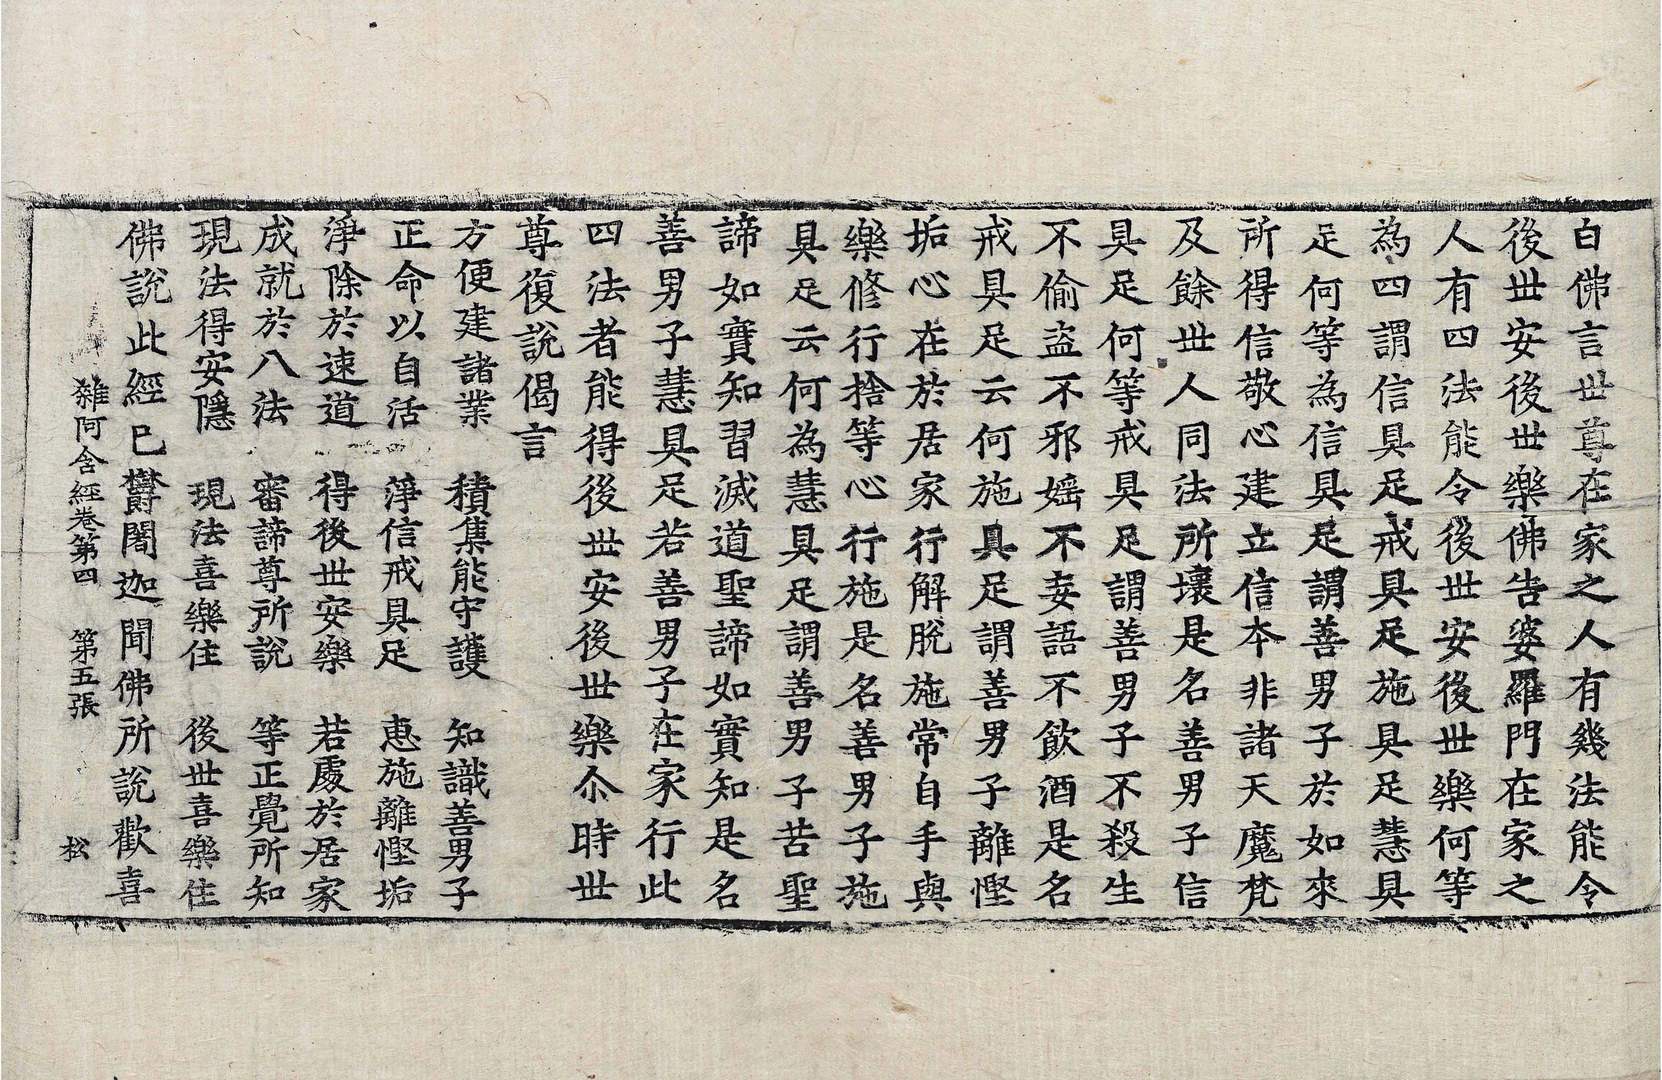 白佛言世尊在家之人有幾法能令
後世安後世樂佛告婆羅門在家之
人有四法能令後世安後世樂何等
為四謂信具足戒具足施具足慧具
足何等為信具足謂善男子於如來
所得信敬心建立信本非諸天魔梵
及餘世人同法所壞是名善男子信
具足何等戒具足謂善男子不殺生
不偷盜不邪婬不妄語不飲酒是名
戒具足云何施具足謂善男子離慳
垢心在於居家行解脫施常自手與
樂修行捨等心行施是名善男子施
具足云何為慧具足謂善男子苦聖
諦如實知習滅道聖諦如實知是名
善男子慧具足若善男子在家行此
四法者能得後世安後世樂尒時世
尊復說偈言
方便建諸業　積集能守護　知識善男子
正命以自活　淨信戒具足　惠施離慳垢
淨除於速道　得後世安樂　若處於居家
成就於八法　審諦尊所說　等正覺所知
現法得安隱　現法喜樂住　後世喜樂住
佛說此經已欝闍迦聞佛所說歡喜
雜阿含經卷第四　第五張　松